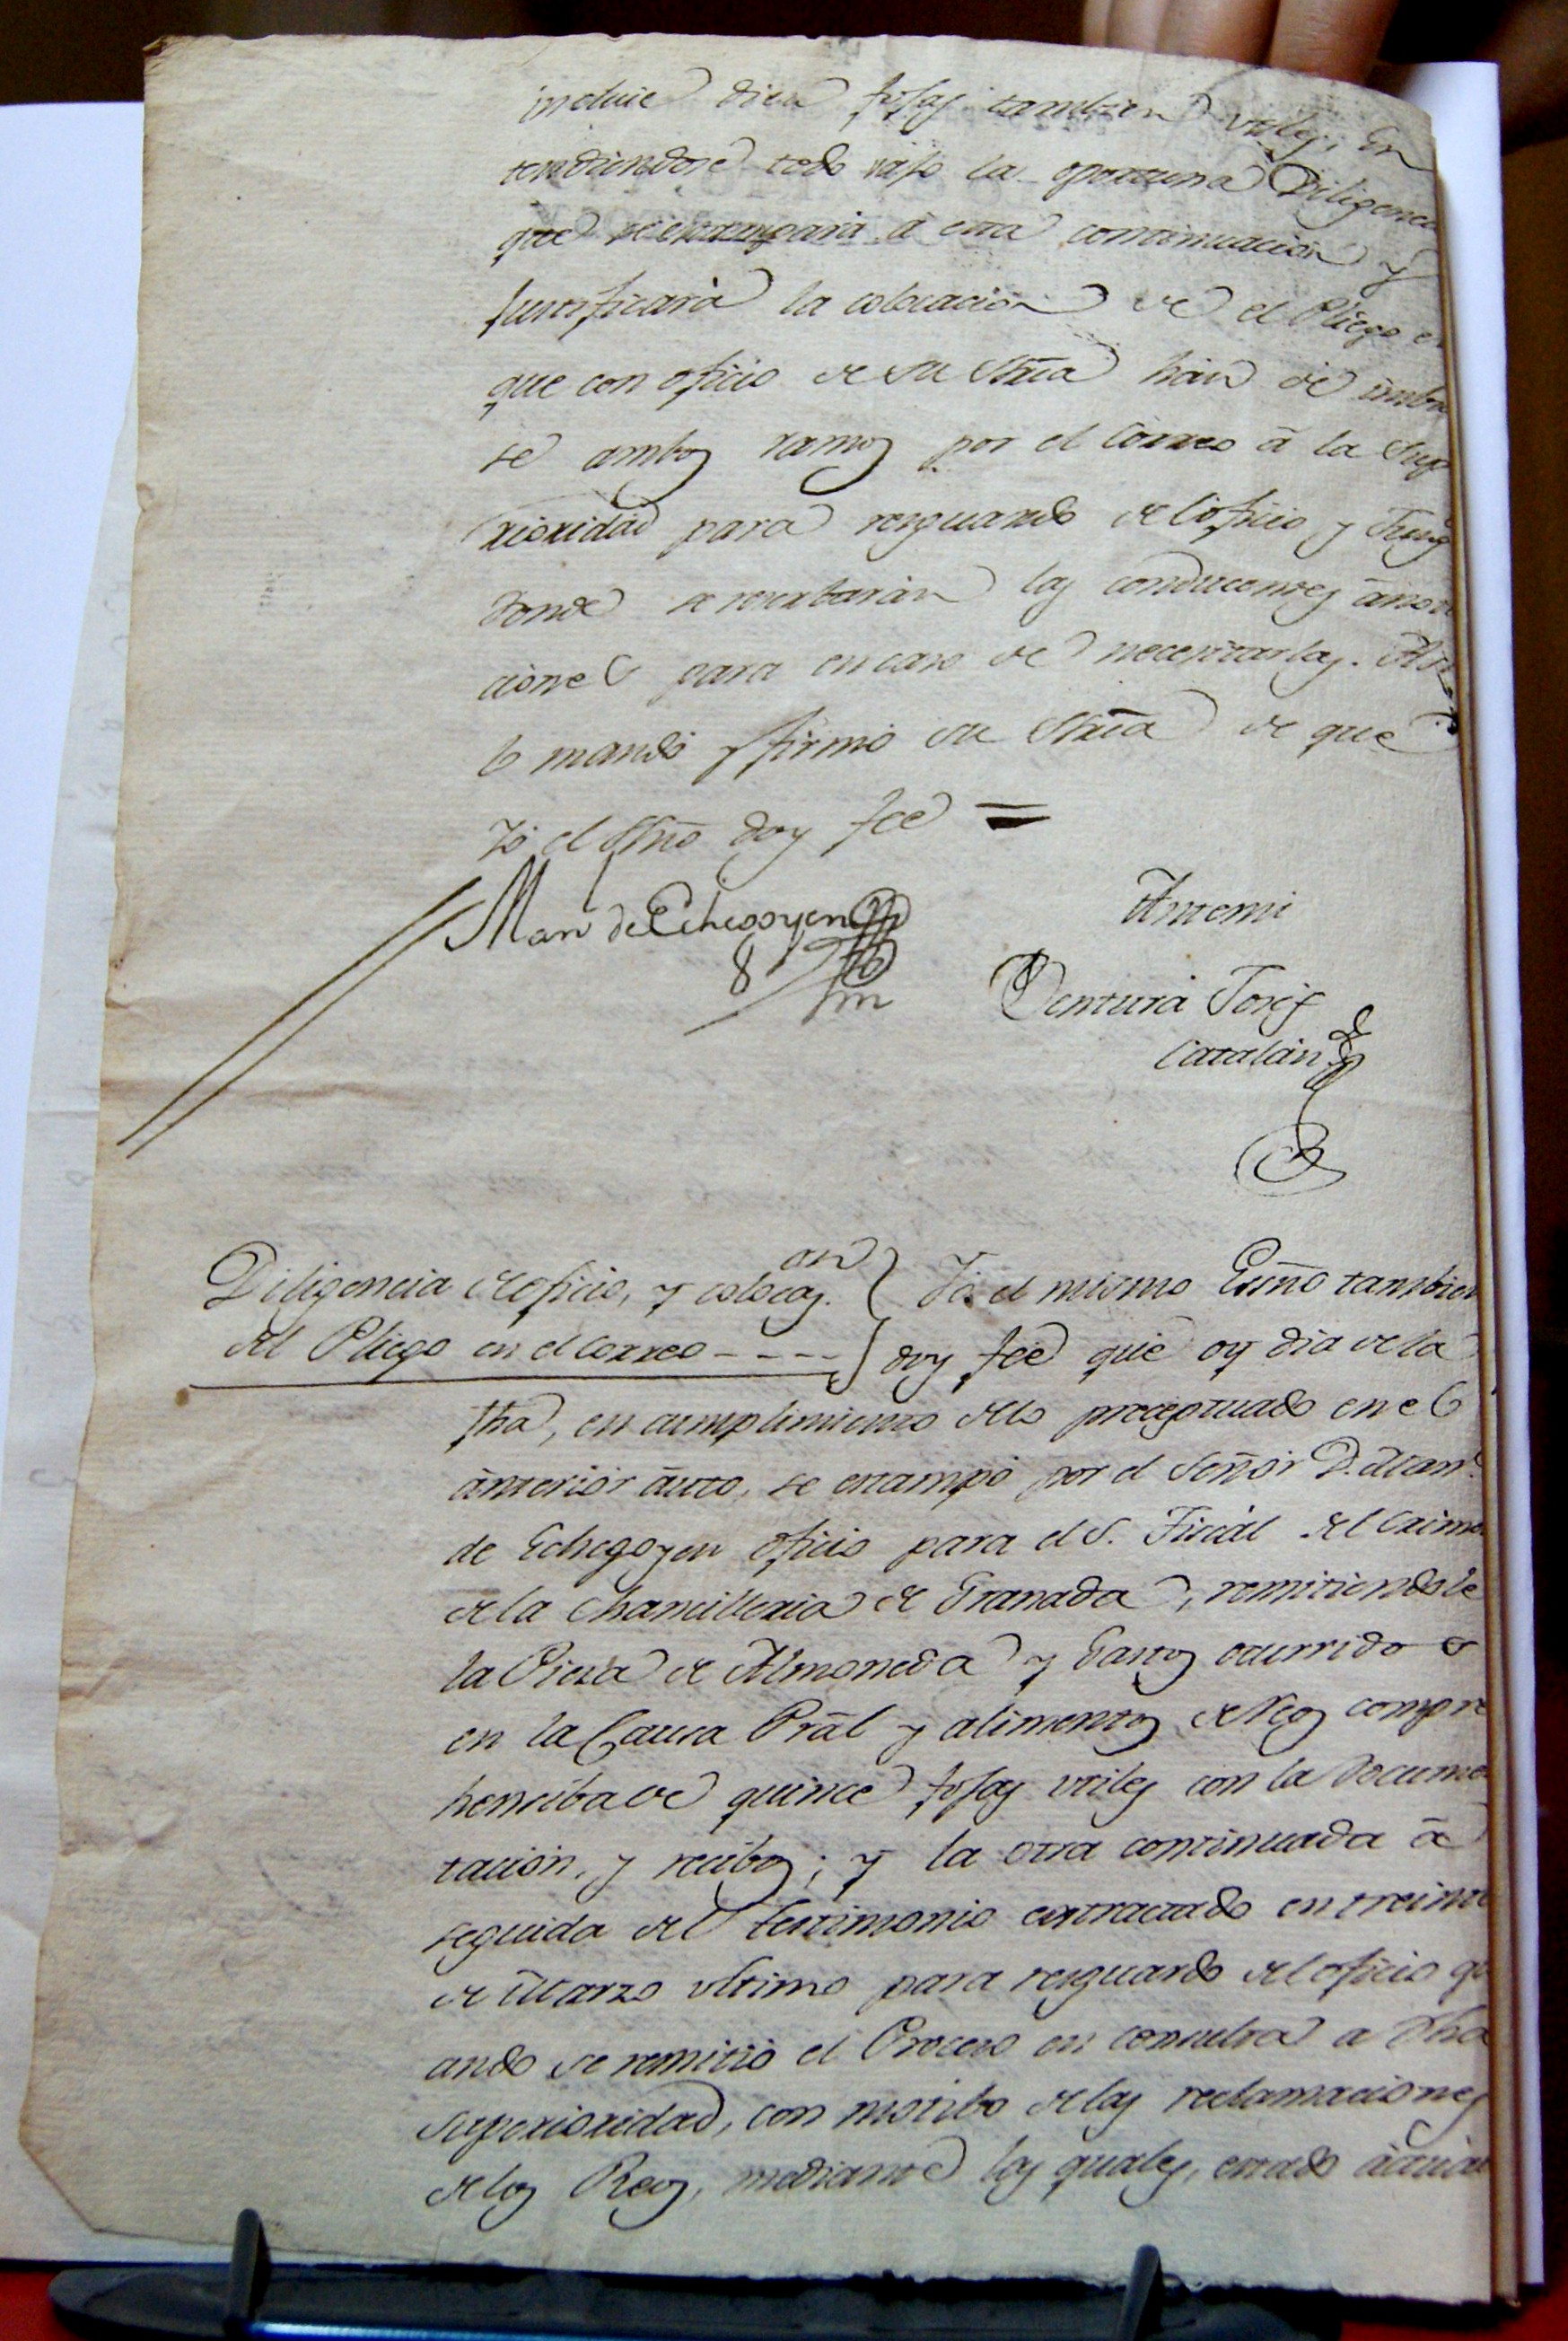 incluie diez fojas tambien utiles; En
tendiendose todo vajo la oportuna Diligencia
que se estampará á esta continuacion y
Justificará la colocacion de el Pliego en
que con oficio de su Sria han de imbiar
se ambos ramos por el Correo á la Supe
rioridad para resguardo del oficio y Juzg
donde se reserbarán las conducentes anota
ciones para en caso de necesitarlas. Asi
lo mandó y firmó su Sria de que
Yó el Ssno doy feé =
Man de Echegoyen
Antemi
Ventura Josef
Catalán
Diligencia de oficio, y colocaz.on } Yó el mismo Essno tambien
del Pliego en el Correo - - - - } doy feé que oy dia de la
fha, en cumplimiento de lo preceptuado en el
anterior auto, se estampó por el Señor D. Man.l
de Echegoyen oficio para el S. Fiscál del Crimen
de la Chancilleria de Granada, remitiendole
la Pieza de Almoneda y Gastos ocurridos
en la Causa Prâl y alimentos de Reos compre
hensiba de quince fojas utiles con la Documen
tación, y recibos; y la otra continuada á
seguida del testimonio extractado en treinta
de Marzo ultimo para resguardo del oficio qu
ando se remitió el Proceso en consulta a dha
Superioridad, con motibo de las reclamaciones
de los Reos, mediante las quales, estado actual